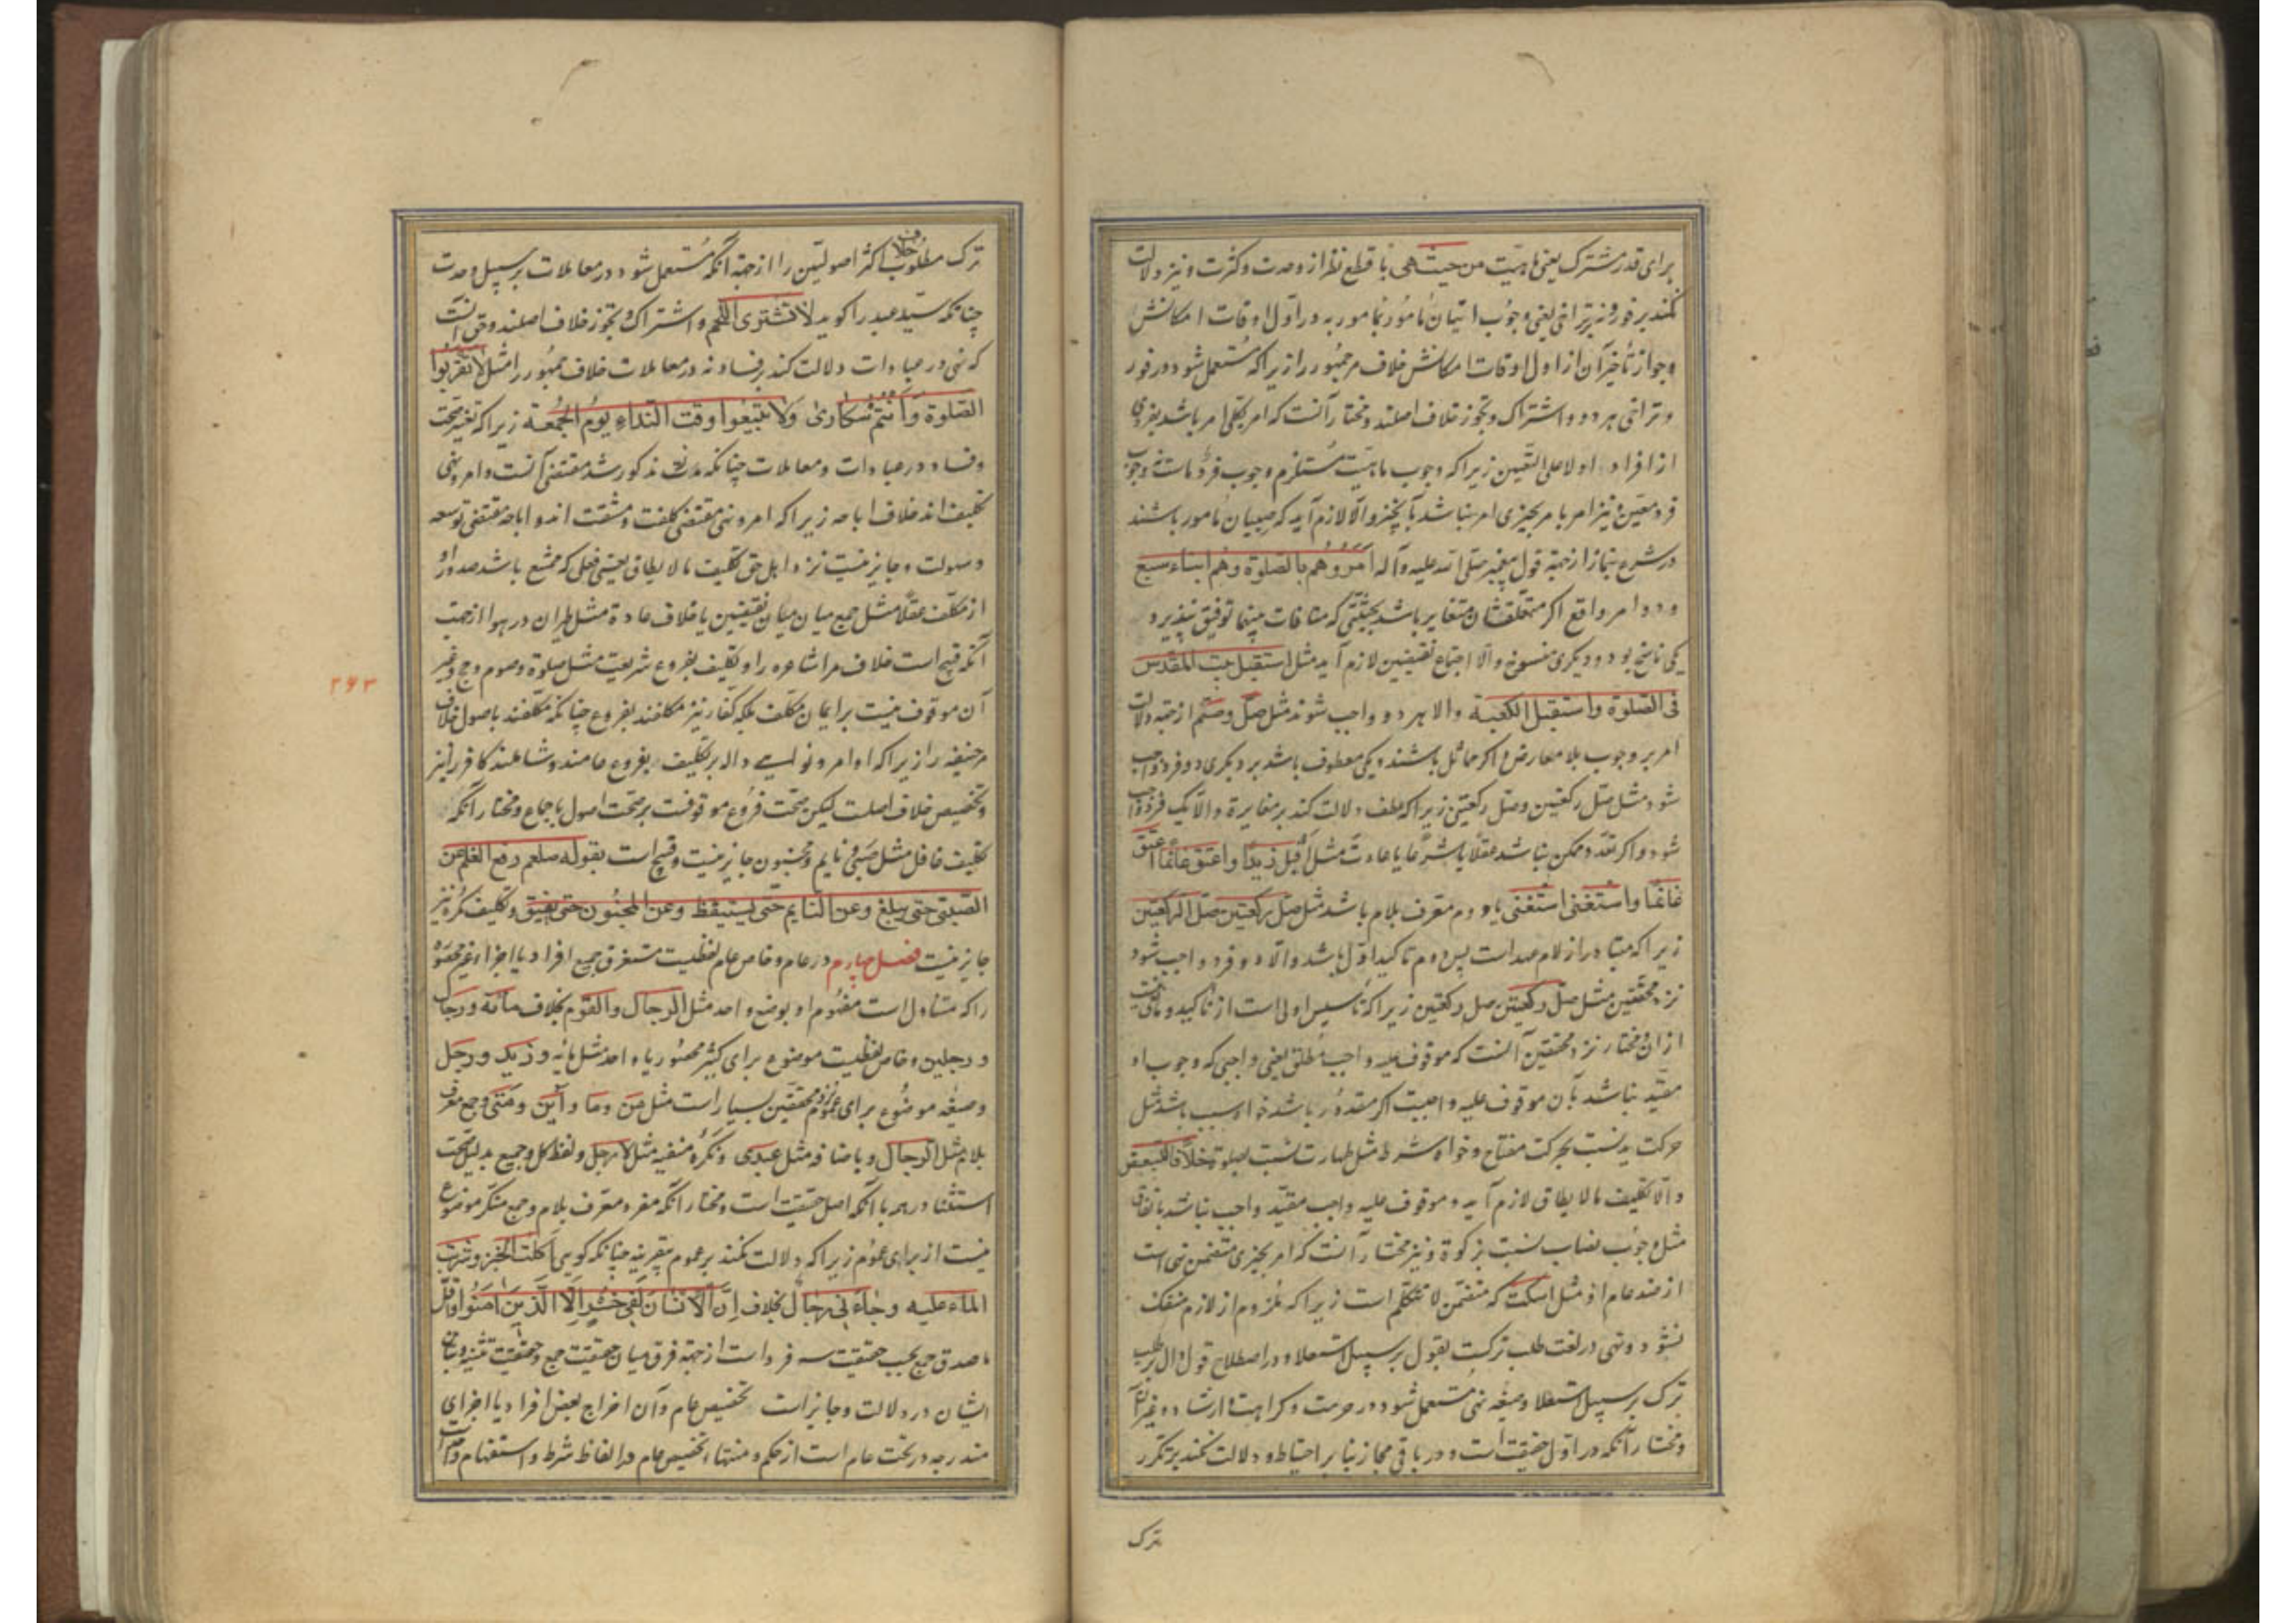 برای قدر مشترک یعنی ماهیت من حیث هی با قطع نظر از وحدت و کثرت و نیز دلالت
نکند بر فور و نه بر تراخی یعنی وجوب اتیان مأمور بمامور به در اول اوقات امکانش
و جواز تأخیر آن از اول اوقات امکانش خلاف مر جمهور را زیرا که مستعمل شود در فور
و تراخی هر دو و اشتراک و تجوز خلاف اصلند و مختار آنست که امر بکلی امر باشد بفردی
از افراد او لا علی التعیین زیرا که وجوب ماهیت مستلزم وجوب فرد ماست نه وجوب
فرد معین و نیز امر بامر بچیزی امر نباشد بآنچیز و الا لازم آید که صبیان مامور باشند
در شرع بنماز از جهة قول پیغمبر صلی الله علیه و آله امروهم بالصلوة و هم ابناء سبع
و دو امر واقع اگر متعلقشان متغایر باشد بحیثیتی که منافات بینهما توفیق نپذیرد
یکی ناسخ بود و دیگری منسوخ و الا اجتماع نقیضین لازم آید مثل استقبل بیت المقدس
فی الصلوة و استقبل الکعبة و الا هر دو واجب شوند مثل صل و صم از جهة دلالت
امر بر وجوب بلا معارض و اگر متماثل باشند و یکی معطوف باشد بر دیگری دو فرد واجب
شود مثل صل رکعتین و صل رکعتین زیرا که عطف دلالت کند بر مغایرة و الا یک فرد واجب
شود و اگر تعدد ممکن نباشد عقلا یا شرعا یا عادت مثل اقتل زیدا و اعتق غانما اعتق
غانما و استغنی استغنی یا دوم معرف بلام باشد مثل صل رکعتین صل الرکعتین
زیرا که متبادر از لام عهد است پس دوم تاکید اول باشد و الا دو فرد واجب شود
نزد محققین مثل صل رکعتین صل رکعتین زیرا که تاسیس اولی است از تاکید و
از آن و مختار نزد محققین آنست که موقوف علیه واجب مطلق یعنی واجبی که وجوب او
مقید نباشد بآن موقوف علیه واجبست اگر مقدور باشد خواه سبب باشد مثل
حرکت ید نسبت بحرکت مفتاح و خواه شرط مثل طهارت نسبت بصلوة خلافا لبعض
و الا تکلیف ما لا یطاق لازم آید و موقوف علیه واجب مقید واجب نباشد باتفاق
مثل وجوب نصاب نسبت بزکوة و نیز مختار آنست که امر بچیزی متضمن نهی است
از ضد عام او مثل اسکت که متضمن لا تتکلم است زیرا که ملزوم از لازم منفک
نشود و نهی در لغت طلب ترکست بقول بر سبیل استعلا و در اصطلاح قول دال بر طلب
ترک بر سبیل استعلا و صیغه نهی مستعمل شود در حرمت و کراهت و ارشاد و غیر آن
و مختار آنکه در اول حقیقت است و در باقی مجاز بنابر احتیاط و دلالت نکند بر تکرر
ترک
ترک مطلوب خلاف اکثر اصولیین را از جهة آنکه مستعمل شود در معاملات بر سبیل وحدت
چنانکه سید عبد را گوید لا تشتری اللحم و اشتراک و تجوز خلاف اصلند و حق آنست
که نهی در عبادات دلالت کند بر فساد نه در معاملات خلاف جمهور را مثل لا تقربوا
الصلوة و أنتم سکاری و لا تبیعوا وقت النداء یوم الجمعة زیرا که صحت
و فساد در عبادات و معاملات چنانکه مذکور شد مقتضی آنست و امر و نهی
تکلیف اند خلاف اباحه زیرا که امر و نهی مقتضی کلفت و مشقت اند و اباحه مقتضی توسعه
و سهولت و جایز نیست نزد اهل حق تکلیف ما لا یطاق یعنی فعلی که ممتنع باشد صدور او
از مکلف عقلا مثل جمع میان میان نقیضین یا خلاف عادة مثل طیران در هوا از جهت
آنکه قبیح است خلاف مر اشاعره را و تکلیف بفروع شریعت مثل صلوة و صوم و حج و غیر
۲۶۳
آن موقوف نیست بر ایمان مکلف بلکه کفار نیز مکلفند بفروع چنانکه مکلفند باصول خلاف
مر حنیفه را زیرا که اوامر و نواهی داله بر تکلیف بفروع عامند و شاملند کافر را نیز
و تخصیص خلاف اصلست لیکن صحت فروع موقوفست بر صحت اصول باجماع و مختار آنکه
تکلیف غافل مثل صبی و نایم و مجنون جایز نیست و قبیح است بقوله صلعم رفع القلم عن
الصبی حتی یبلغ و عن النایم حتی یستیقظ و عن المجنون حتی یفیق و تکلیف مکره نیز
جایز نیست فصل چهارم در عام و خاص عام لفظیست مستغرق جمیع افراد یا اجزاء غیر محصور
را که متناول است مفهوم او بوضع واحد مثل الرجال و القوم بخلاف مائة و رجال
و رجلین و خاص لفظیست موضوع برای کثیر محصور یا واحد مثل مائه و زید و رجل
و صیغه موضوع برای عموم نزد محققین بسیار است مثل من و ما و أین و متی و جمع معرف
بلام مثل الرجال و باضافه مثل عبدی و نکره منفیه مثل لا رجل و لفظ کل و جمیع بدلیل صحت
استثنا در همه با آنکه اصل حقیقت است و مختار آنکه مفرد معرف بلام و جمع منکر موضوع
نیست از برای عموم زیرا که دلالت نکند بر عموم بقرینه چنانکه گویی اکلت الخبز و شربت
الماء علیه و جاءنی رجال بخلاف إن الانسان لفی خسر إلا الذین امنوا و اقل
ما صدق جمع بحسب حقیقت سه فرد است از جهة فرق میان حقیقت جمع و حقیقت تثنیه و تباین
ایشان در دلالت و جایز است تخصیص عام و آن اخراج بعض افراد یا اجزای
مندرجه در تحت عام است از حکم و منتهاء تخصیص عام در الفاظ شرط و استفهام و